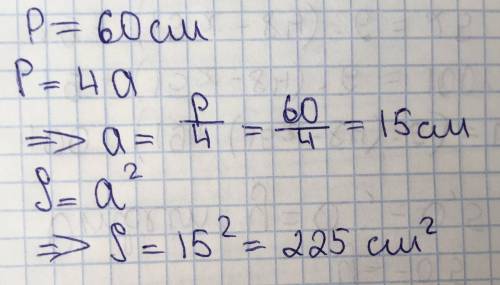 P = 60 см
P = 4a
=> a = P/4 = 60/4 = 15 см
S = a²
=> S = 15² = 225 см²